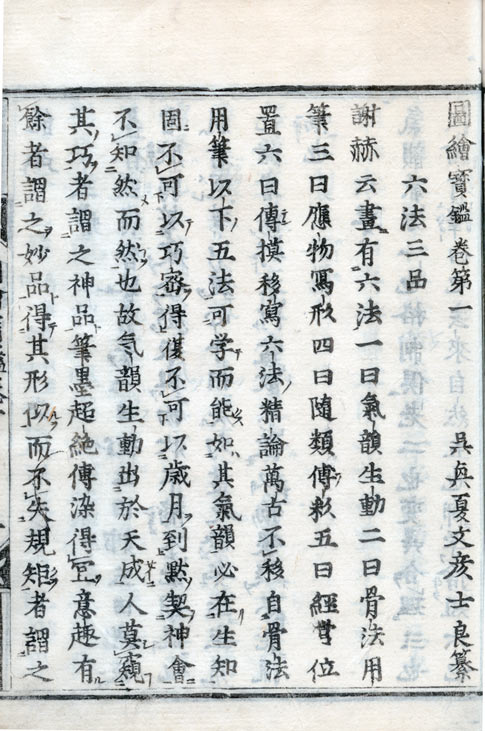 圖繪寳鑑卷第一　吳興夏文彦士良纂
六法三品
謝赫云畫有六法一曰氣韻生動二曰骨法用
筆三曰應物寫形四曰隨類傅彩五曰經營位
置六曰傳摸移寫六法精論萬古不移自骨法
用筆以下五法可学而能如其氣韻必在生知
固不可以巧密得復不可以歳月到黙契神會
不知然而然也故气韻生動出於天成人莫窺
其巧者謂之神品筆墨超絶傳染得宜意趣有
餘者謂之妙品得其形似而不失規矩者謂之